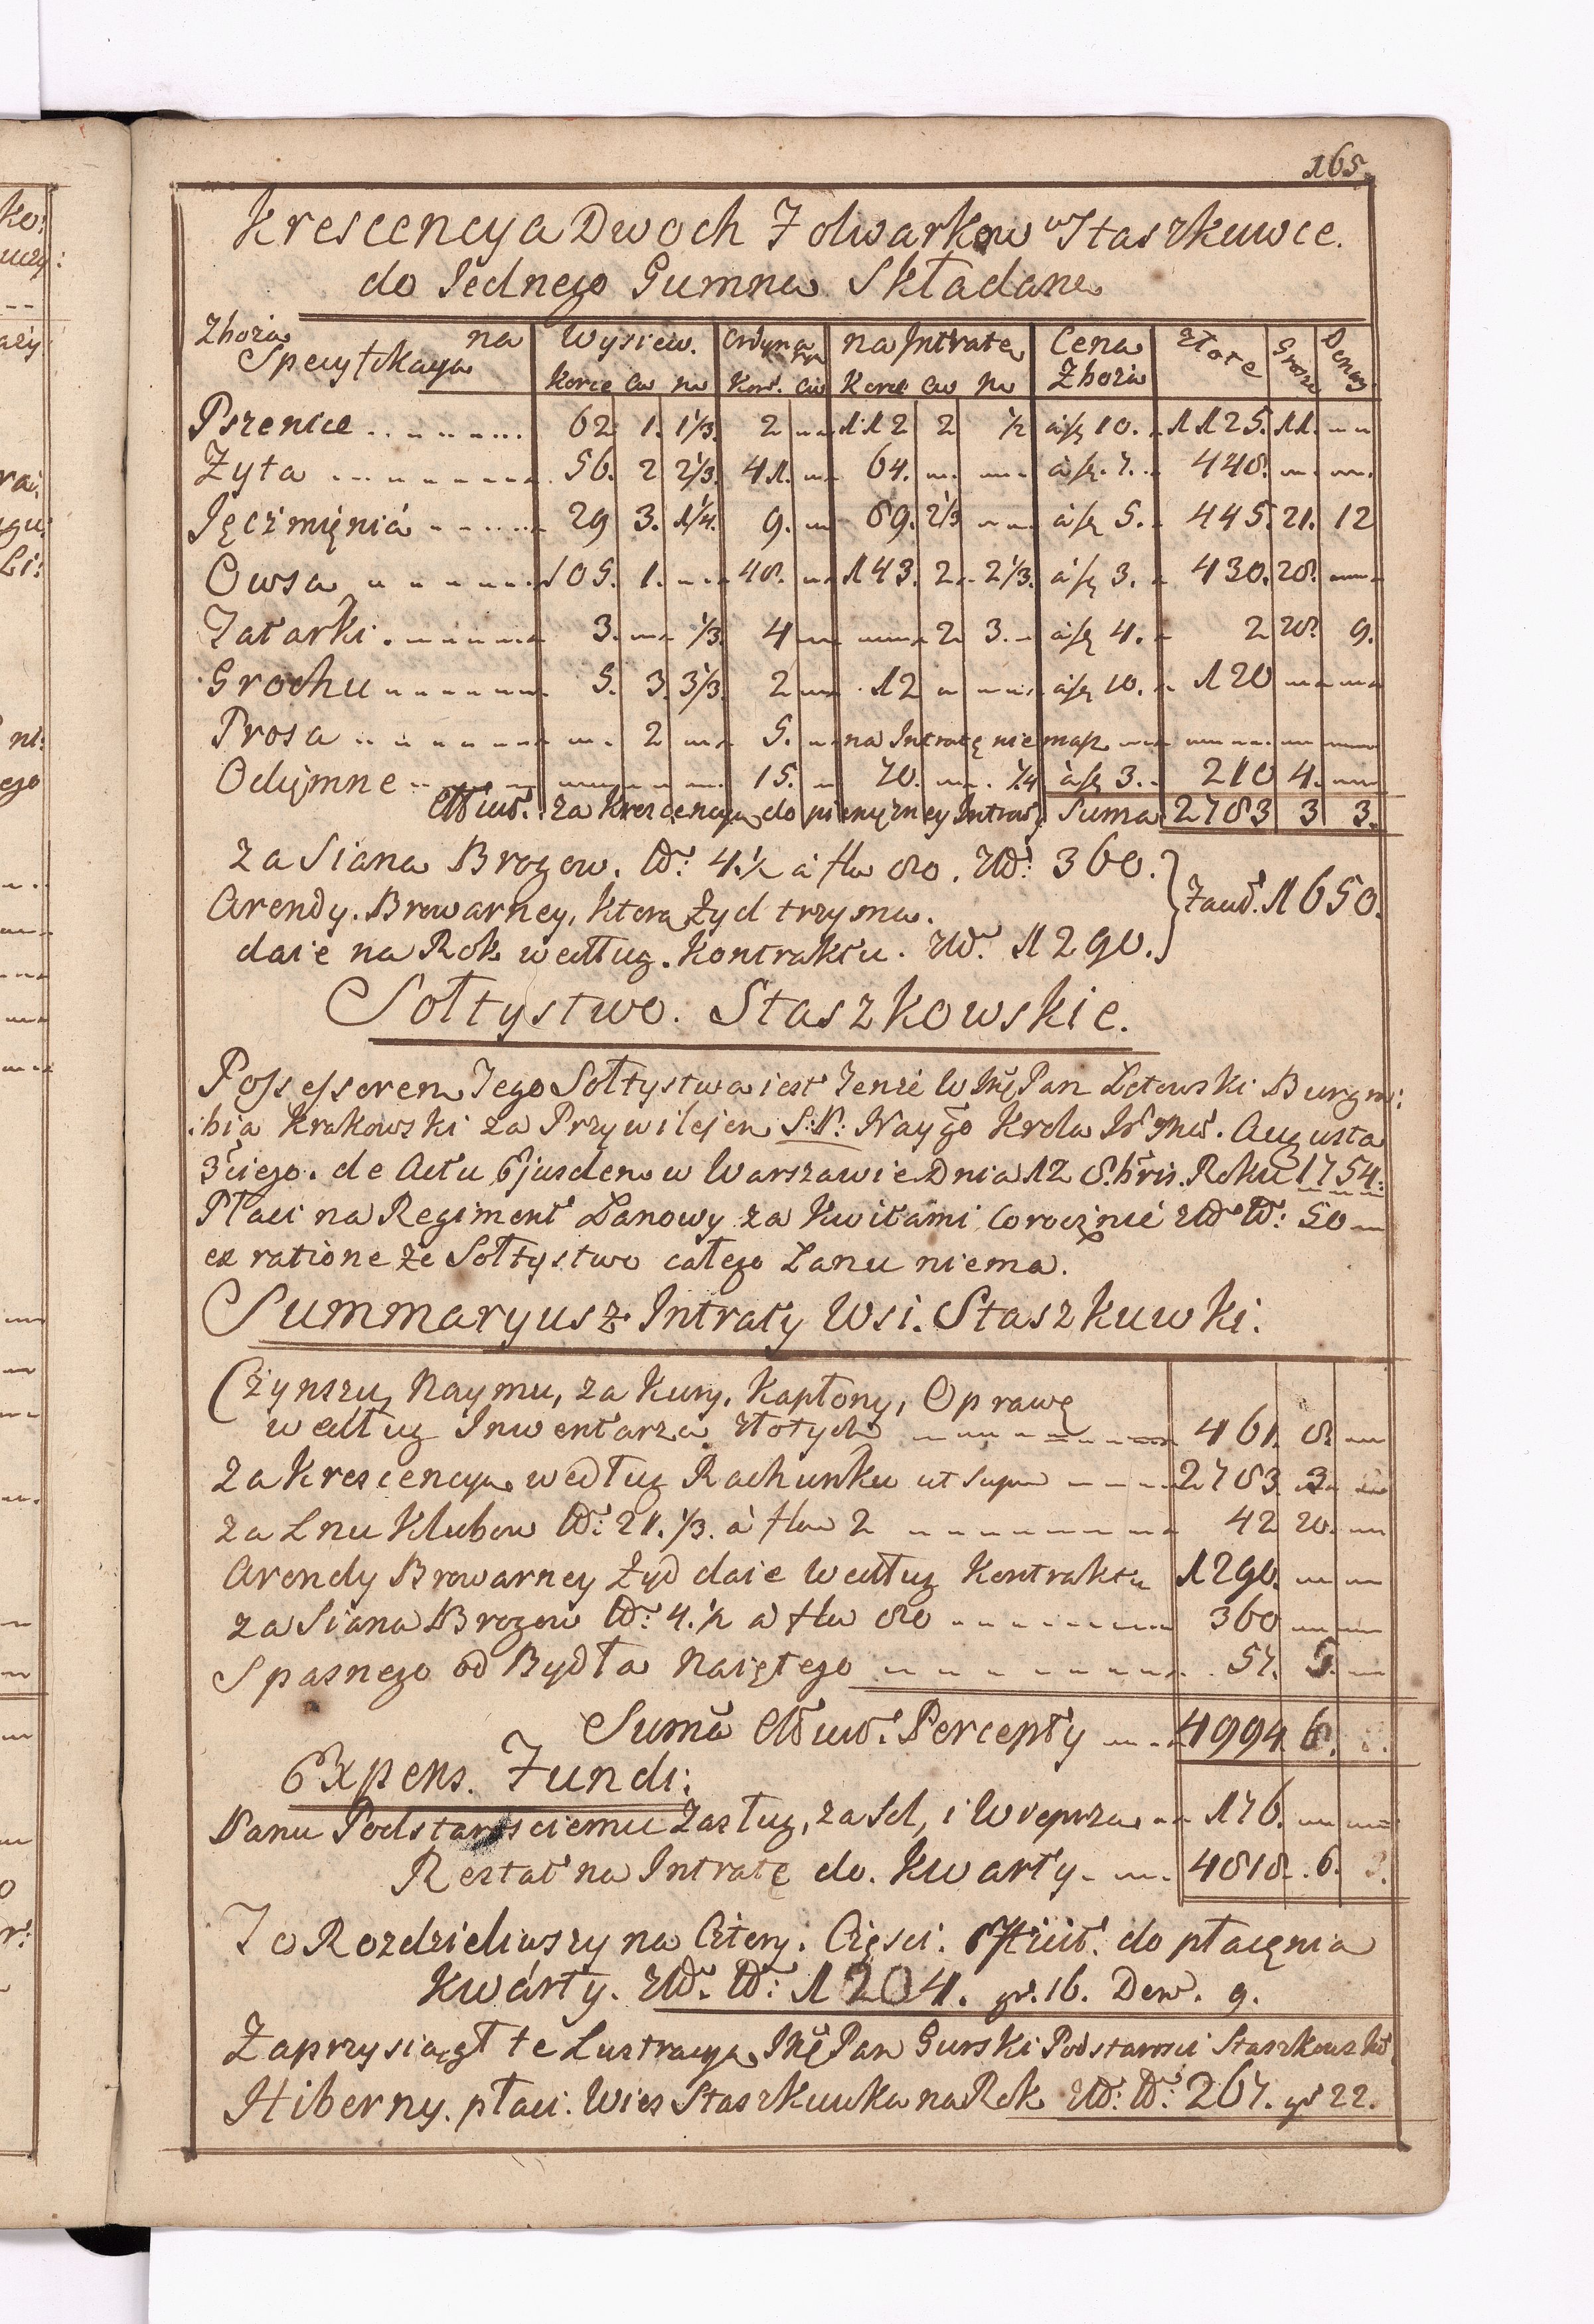 165.
Krescencya Dwoch Folwarkow w Staszkuwce.
do Iednego Gumna Składana
Zboża na Specyfikacya | Wysiew. Korce Ćw na | Ordyna Kor. Ćw | na Intratę Korce Ćw na | Cena Zboża | Złote | Grosze | Denar
Pszenice | 62 | 1. | 1⅓. | 2 | 112 | 2 | ½ | à fl 10. | 1125. | 11.
Żyta | 56. | 2 | 2⅓. | 41. | 64. | à fl. 7. | 448.
Jęczmięniá | 29 | 3. | 1¼. | 9. | 89. | 2⅓ | à fl 5. | 445. | 21. | 12
Owsa | 105. | 1. | 48. | 143. | 2 | 2⅓. | à fl 3. | 430. | 28.
Tatarki | 3. | ⅓. | 4 | 2 | 3. | à fl 4. | 2 | 28. | 9.
Grochu | 5. | 3. | 3⅓. | 2 | 12 | à fl 10. | 120
Prosa | 2 | 5. | na Intratę niemasz
Odymne | 15. | 70. | ¼ | à fl 3. | 210 | 4.
za Krescencyą do pienięzney Intraty Suma 2783 3 3.
za Siana Brogow. No: 4.½ à fl 80. 360.
Arendy. Browarney, ktorą Żyd trzyma.
daie na Rok według. Kontraktu. 1290. 1650.
Sołtystwo. Staszkowskie.
Possessorem Tego Sołtystwa iest Tenże WJMę Pan Łętowski Burgra:
:bia Krakowski za Przywilejem S: N: Króla Augusta
3ciego. de Actu Ejusdem w Warszawie Dnia 12 8.bris. Roku 1754.
Płaci na Regiment Łanowy za Kwitami Corocznié 50
ex ratione że Sołtystwo całego Łanu niema.
Summaryusz Intraty Wsi. Staszkuwki.
Czynszu, Naymu, za Kury, Kapłony, Oprawę
według Inwentarza złotych 461. 8.
za Krescencyą według Rachunku ut supra 2783. 3.
za Lnu Klubow No: 21.⅓. à fl 2 42 20.
Arendy Browarney Żyd daie według Kontraktu 1290.
za Siana Brogow No: 4.½ à fl 80 360
Spasnego od Bydła Naiętego 57. 5.
Suma Percepty 4994 6.
Expens. Fundi:
Panu Podstarościemu Zasług, za Sól, i Wieprza 176.
Restat na Intratę do. Kwarty. 4818. 6.
To Rozdzieliwszy na Cztery. Częsci. do płacęnia
Kwárty. 1204. gr. 16. Den. 9.
Zaprzysiągł tę Lustracyą JMę Pan Gurski Podstarosci
Hiberny. płaci. Wies Staszkuwka na Rok 267. gr 22.